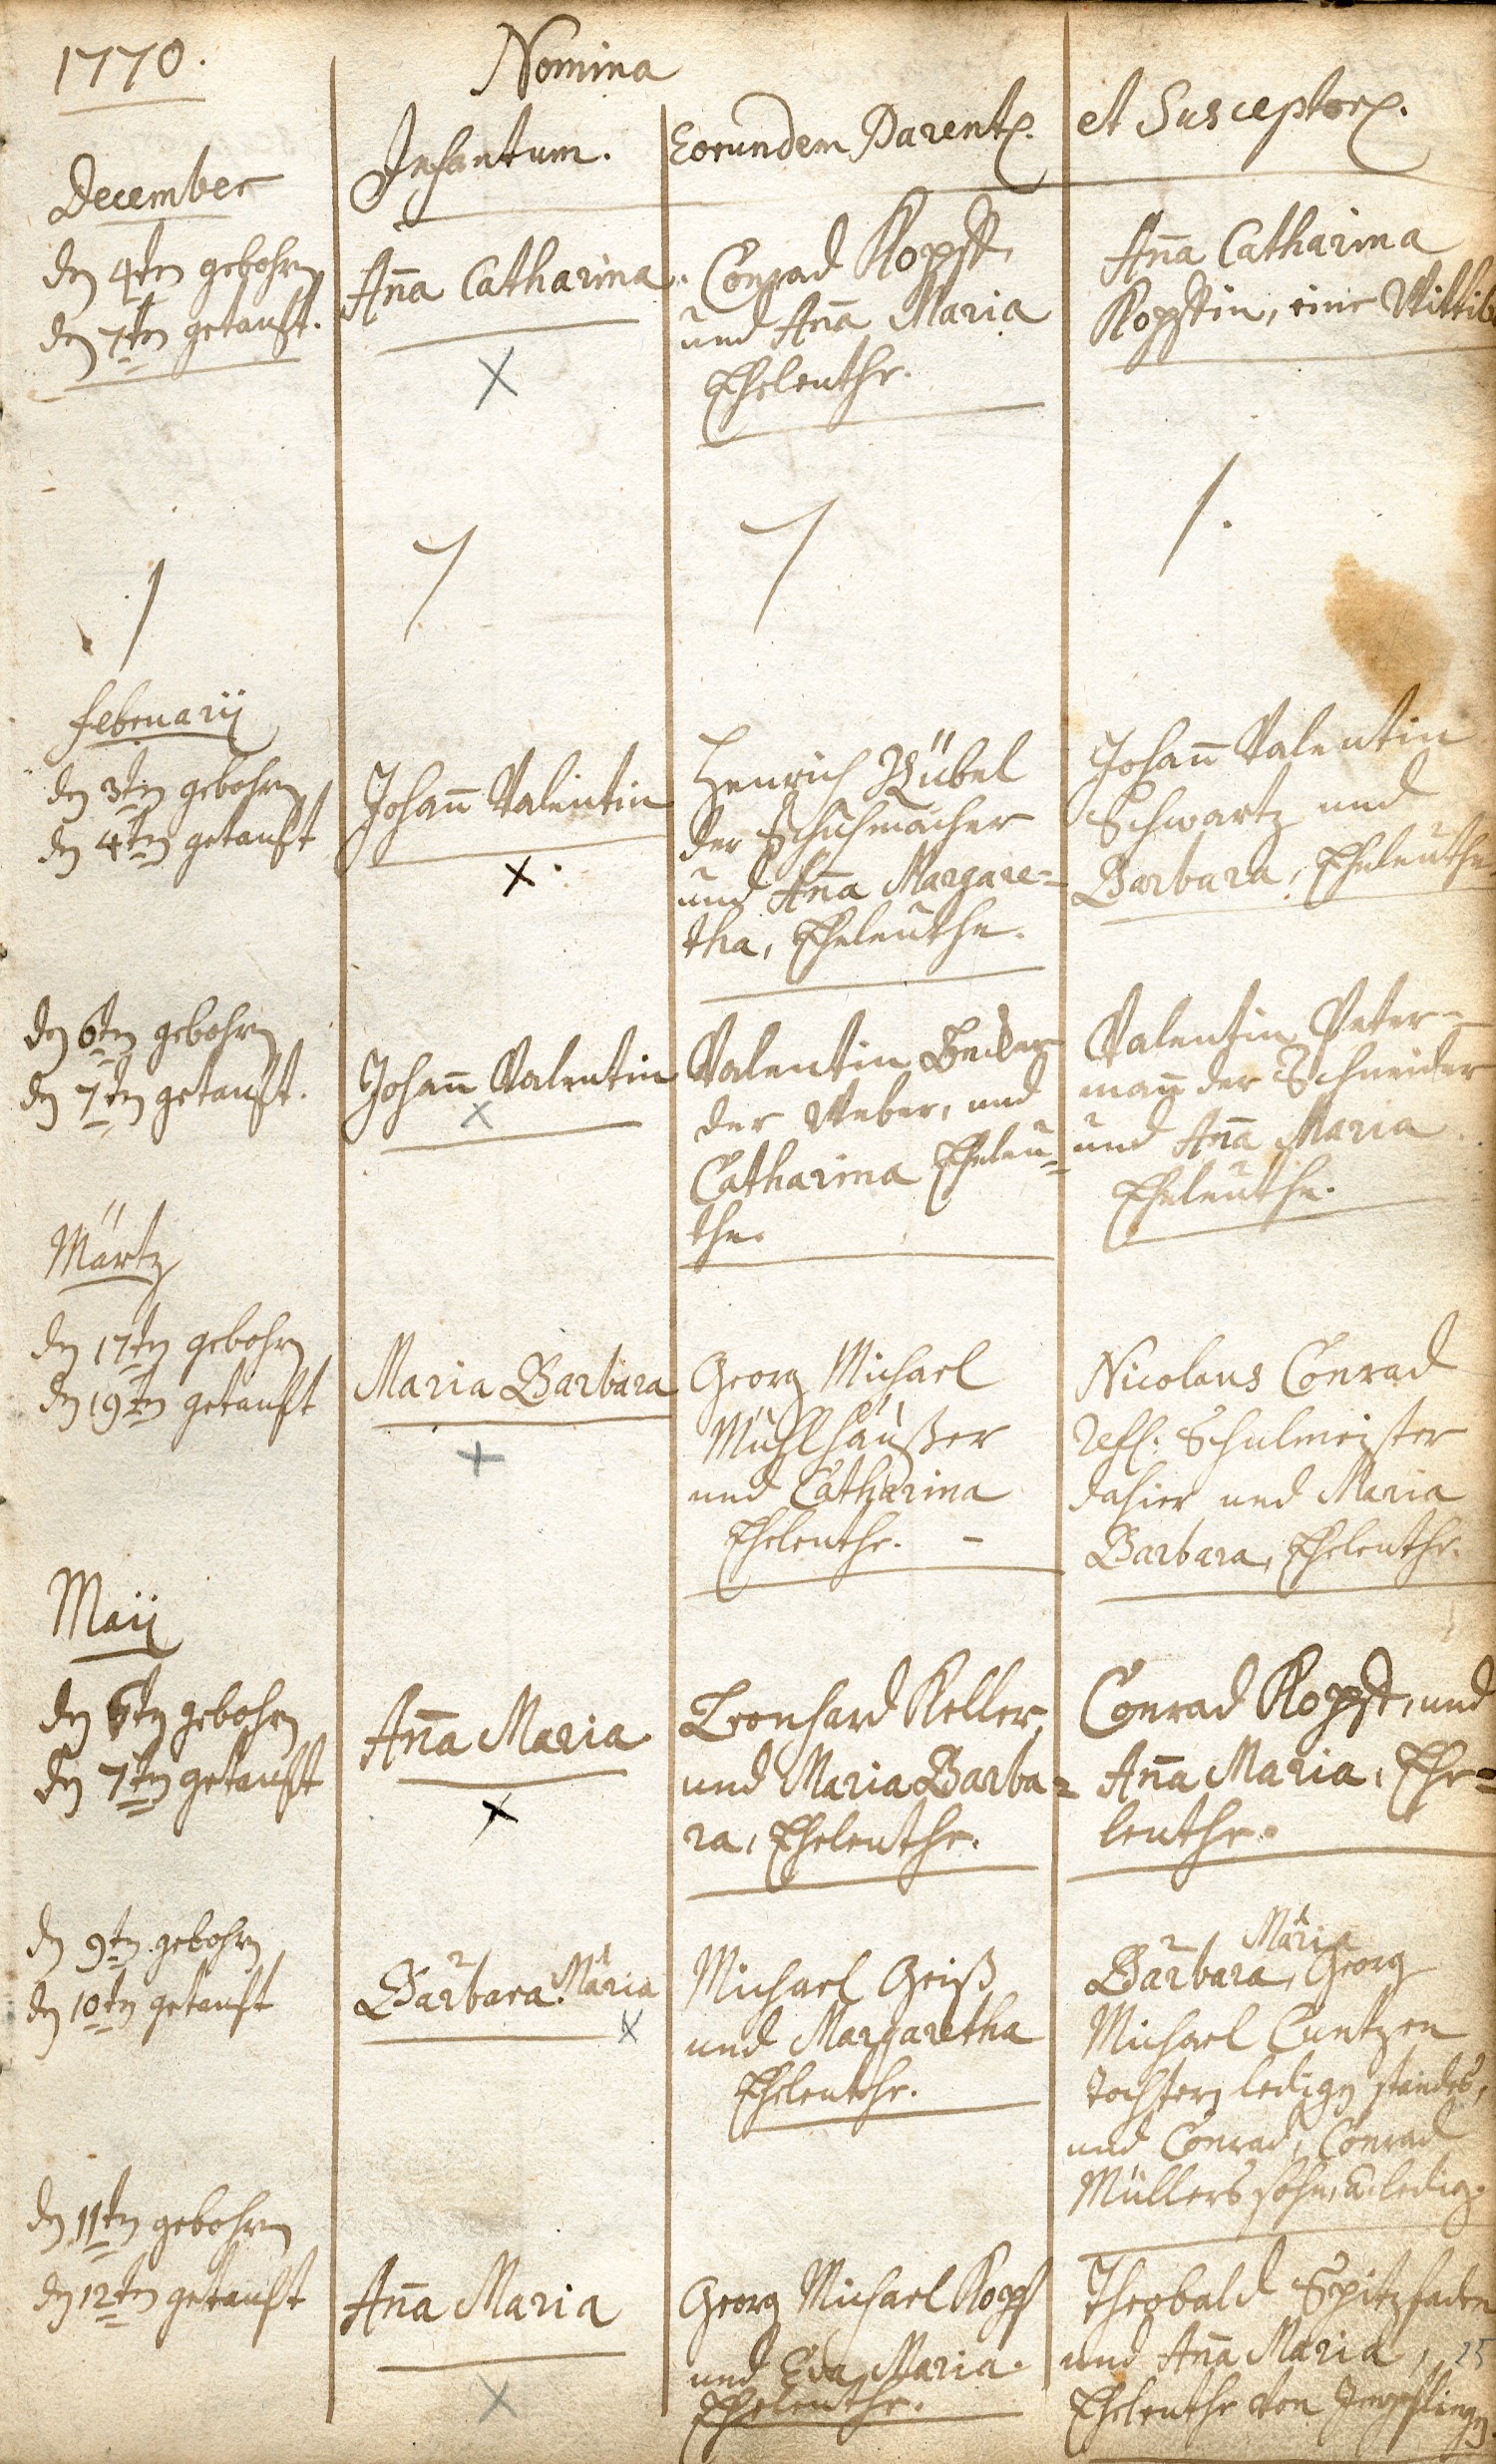 1770.
Nomina
Infantum.
Eorundem Parent.
et Susceptor.
December
den 4ten gebohren
den 7ten getauft.
Añna Catharina.
Conrad Kopff,
und Aña Maria
Eheleuthe.
Aña Catharina
Kopffin, eine Wittib
Februarij
den 3ten gebohren
den 4ten getauft
Johañ Valentin
Henrich Kübel
der Schuhmacher
und Aña Margare=
tha, Eheleuthe.
Johañ Valentin
Schwartz und
Barbara, Eheleuthe.
den 6ten gebohren
den 7ten getauft.
Johañ Valentin
Valentin Becker
der Weber, und
Catharina Eheleu=
the.
Valentin Peter=
mañ der Schneider
und Aña Maria
Eheleuthe.
Märtz
den 17ten gebohren
den 19ten getauft
Maria Barbara
Georg Michael
Mühlhäußer
und Catharina
Eheleuthe. -
Nicolaus Conrad
Schulmeister
dahier und Maria
Barbara, Eheleuthe.
Maij
den 6ten gebohren
den 7ten getauft
Aña Maria
Leonhard Keller,
und Maria Barba=
ra, Eheleuthe.
Conrad Kopff, und
Aña Maria, Ehe=
leuthe.
den 9ten gebohren
den 10ten getauft
2 1
Barbara. Maria
Michael Geiß
und Margaretha
Eheleuthe.
2 1
Maria
Barbara, Georg
Michael Cuntzen
Tochter, ledigen standes,
und Conrad, Conrad
Müllers sohn, ledig.
den 11ten gebohren
den 12ten getauft
Aña Maria
Georg Michael Kopff
und Eva Maria.
Eheleuthe.
Theobald Spitzfaden
und Aña Maria,
25
Eheleuthe von